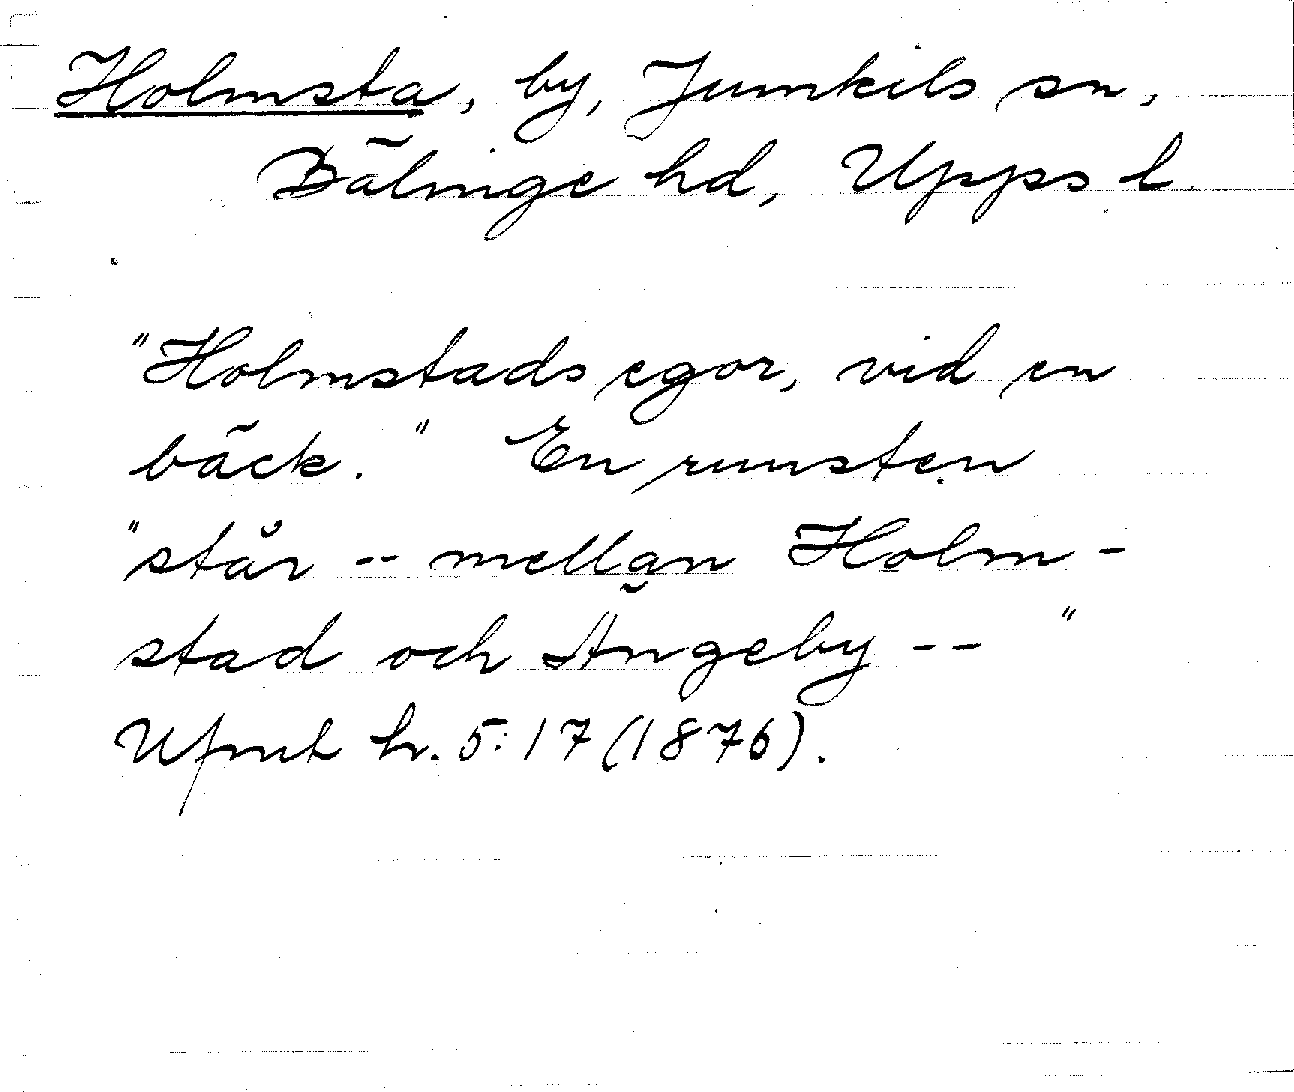 Holmsta, by, Jumkils sn,
Bälinge hd, Upps l
"Holmstads egor, vid en
bäck." En runsten
"står -- mellan Holm-
stad och Ängeby -- "
Ufmt h. 5:17 (1876).